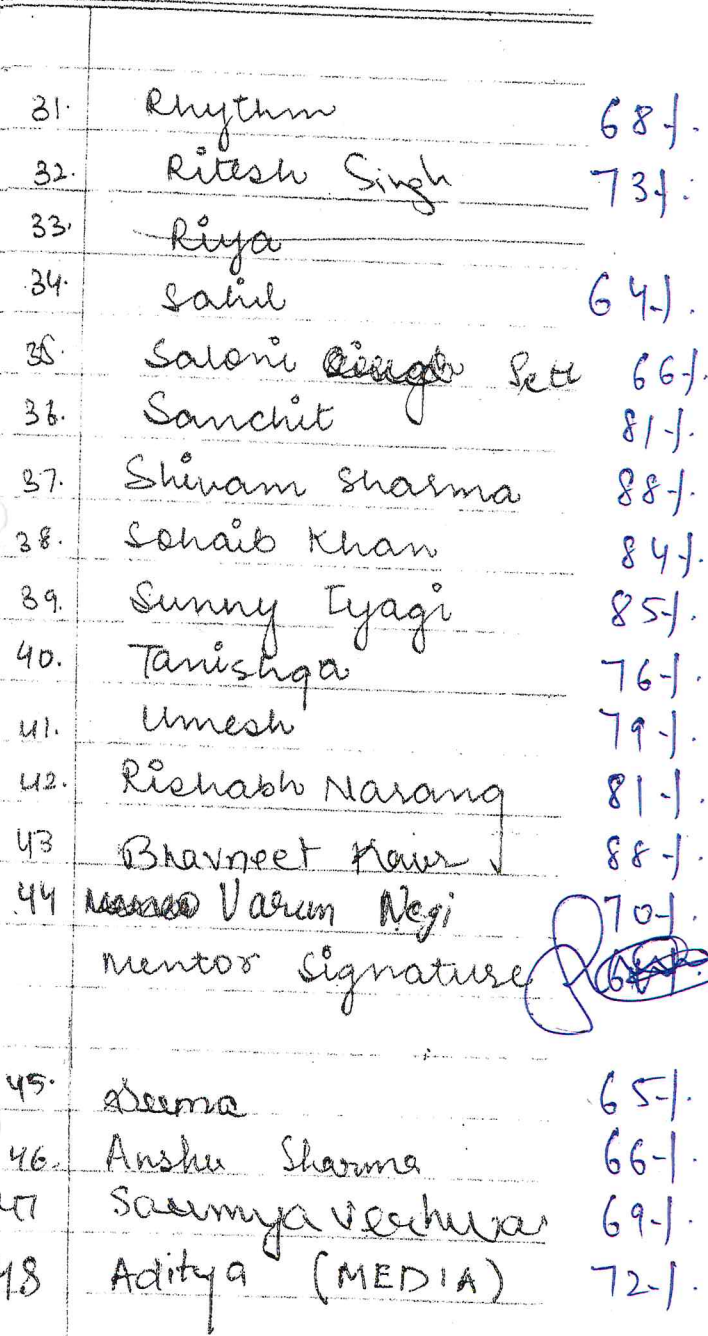 31. Rhythm 68%.
32. Ritesh Singh 73%.
33. Riya
34. Sahil 64%.
35. Saloni Sett 66%.
36. Sanchit 81%.
37. Shivam Sharma 88%.
38. Sohaib Khan 84%.
39. Sunny Tyagi 85%.
40. Tanishqa 76%.
41. Umesh 79%.
42. Rishabh Narang 81%.
43 Bhavneet Kaur 88%.
44 Varun Negi 70%.
Mentor Signature
45. Seema 65%.
46. Anshu Sharma 66%.
47 Saumya 69%.
48 Aditya (MEDIA) 72%.